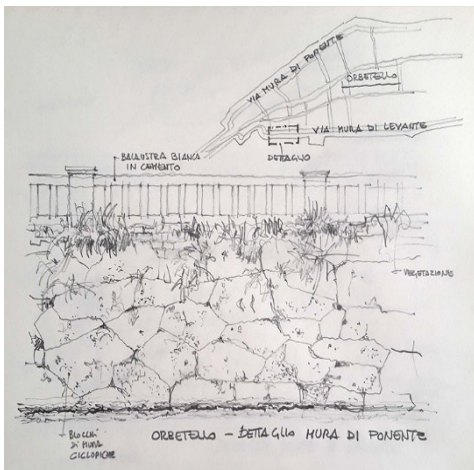 VIA MURA DI PONENTE
ORBETELLO
VIA MURA DI LEVANTE
DETTAGLIO
BALAUSTRA BIANCA
IN CEMENTO
VEGETAZIONE
BLOCCHI
DI MURA
CICLOPICHE
ORBETELLO - DETTAGLIO MURA DI PONENTE